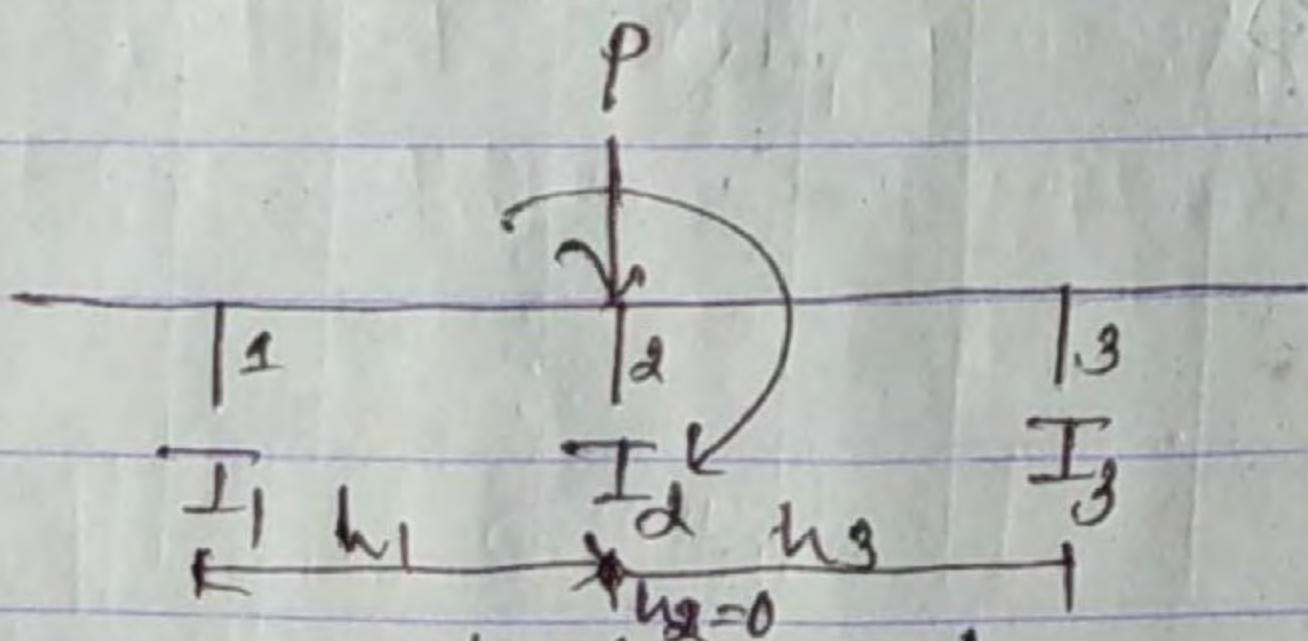 P
1 2 3
I1 I2 I3
h1 h3
h2=0